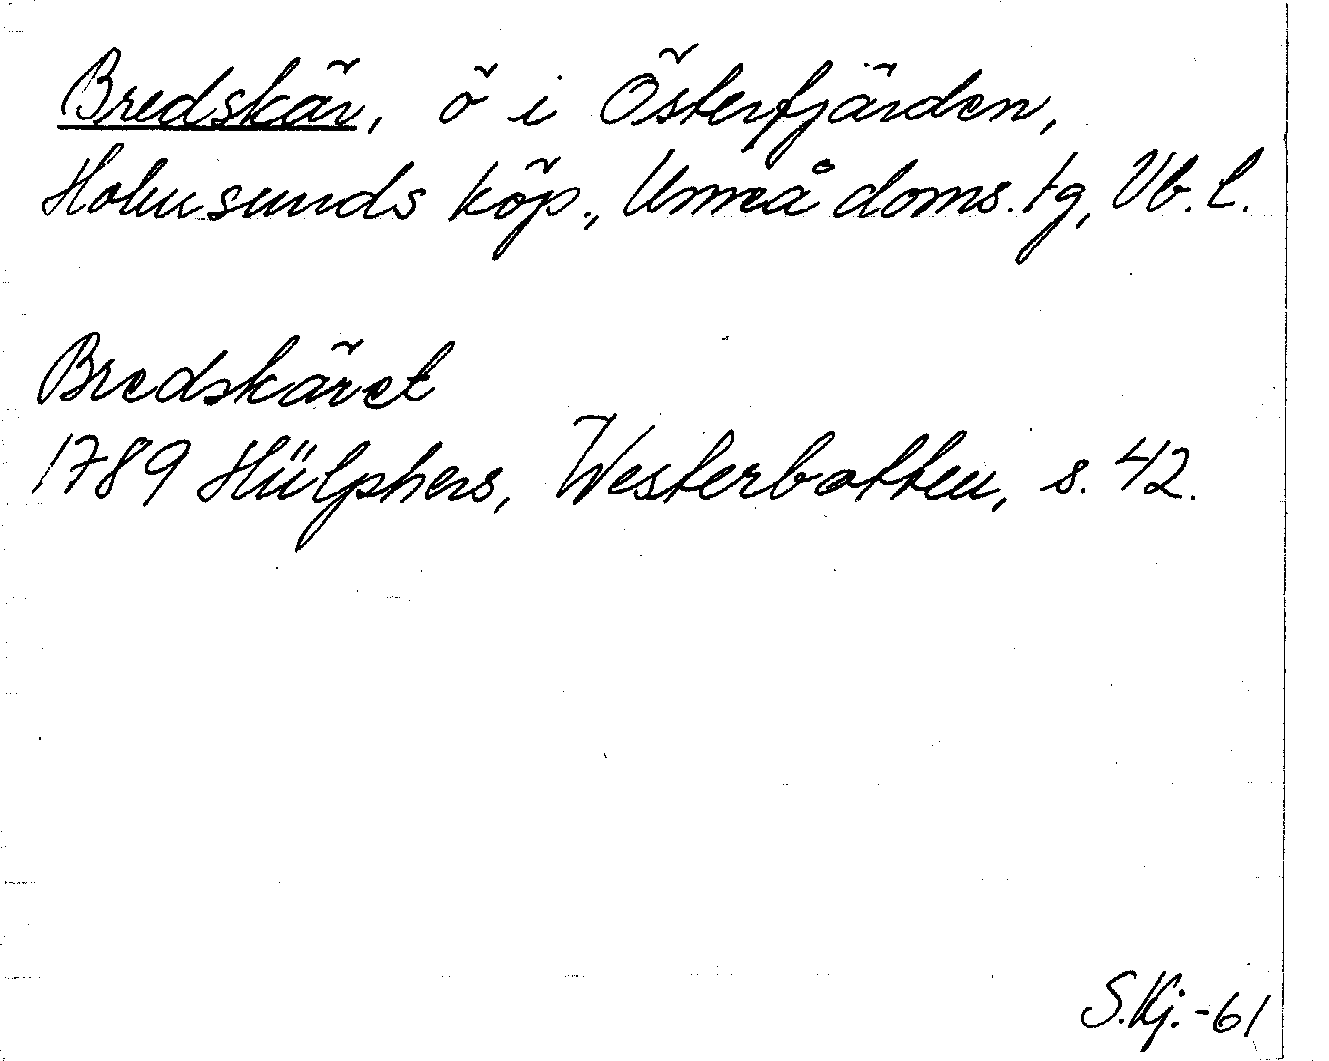 Bredskär, ö i Österfjärden,
Holmsunds köp., Umeå doms. tg, Vb. l.
Bredskäret
1789 Hülphers, Westerbotten, s. 42.
S.Kj.-61